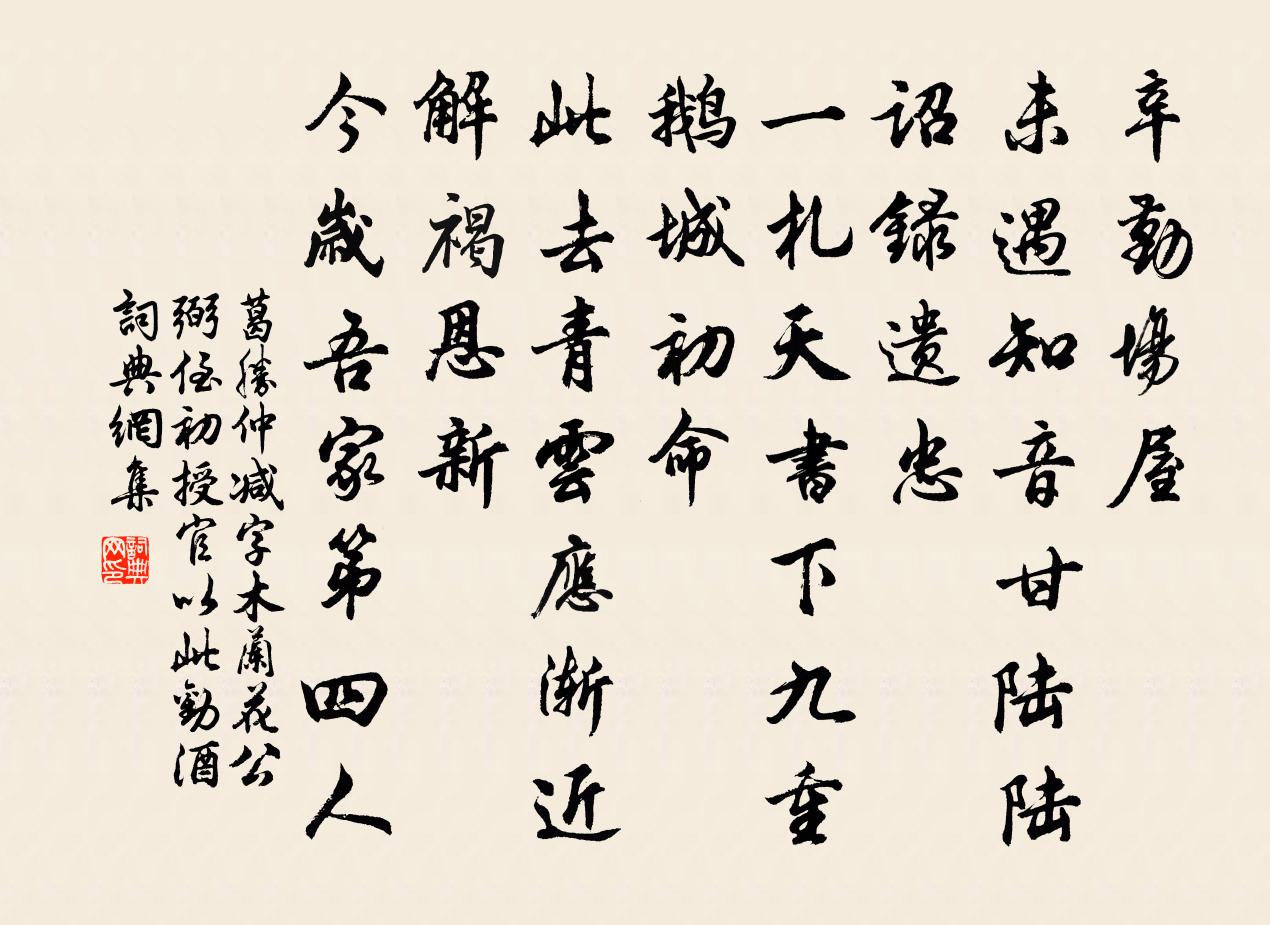 辛勤場屋
未遇知音甘陸陸
詔錄遺忠
一札天書下九重
鵝城初命
此去青雲應漸近
解褐恩新
今歲吾家第四人
葛勝仲減字木蘭花公
弼侄初授官以此勸酒
詞典網集
詞典网印